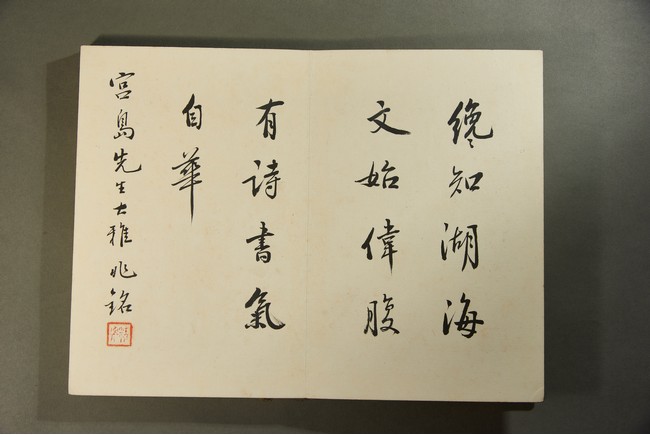 纔知湖海
文始偉腹
有詩書氣
自華
宮島先生大雅 兆銘